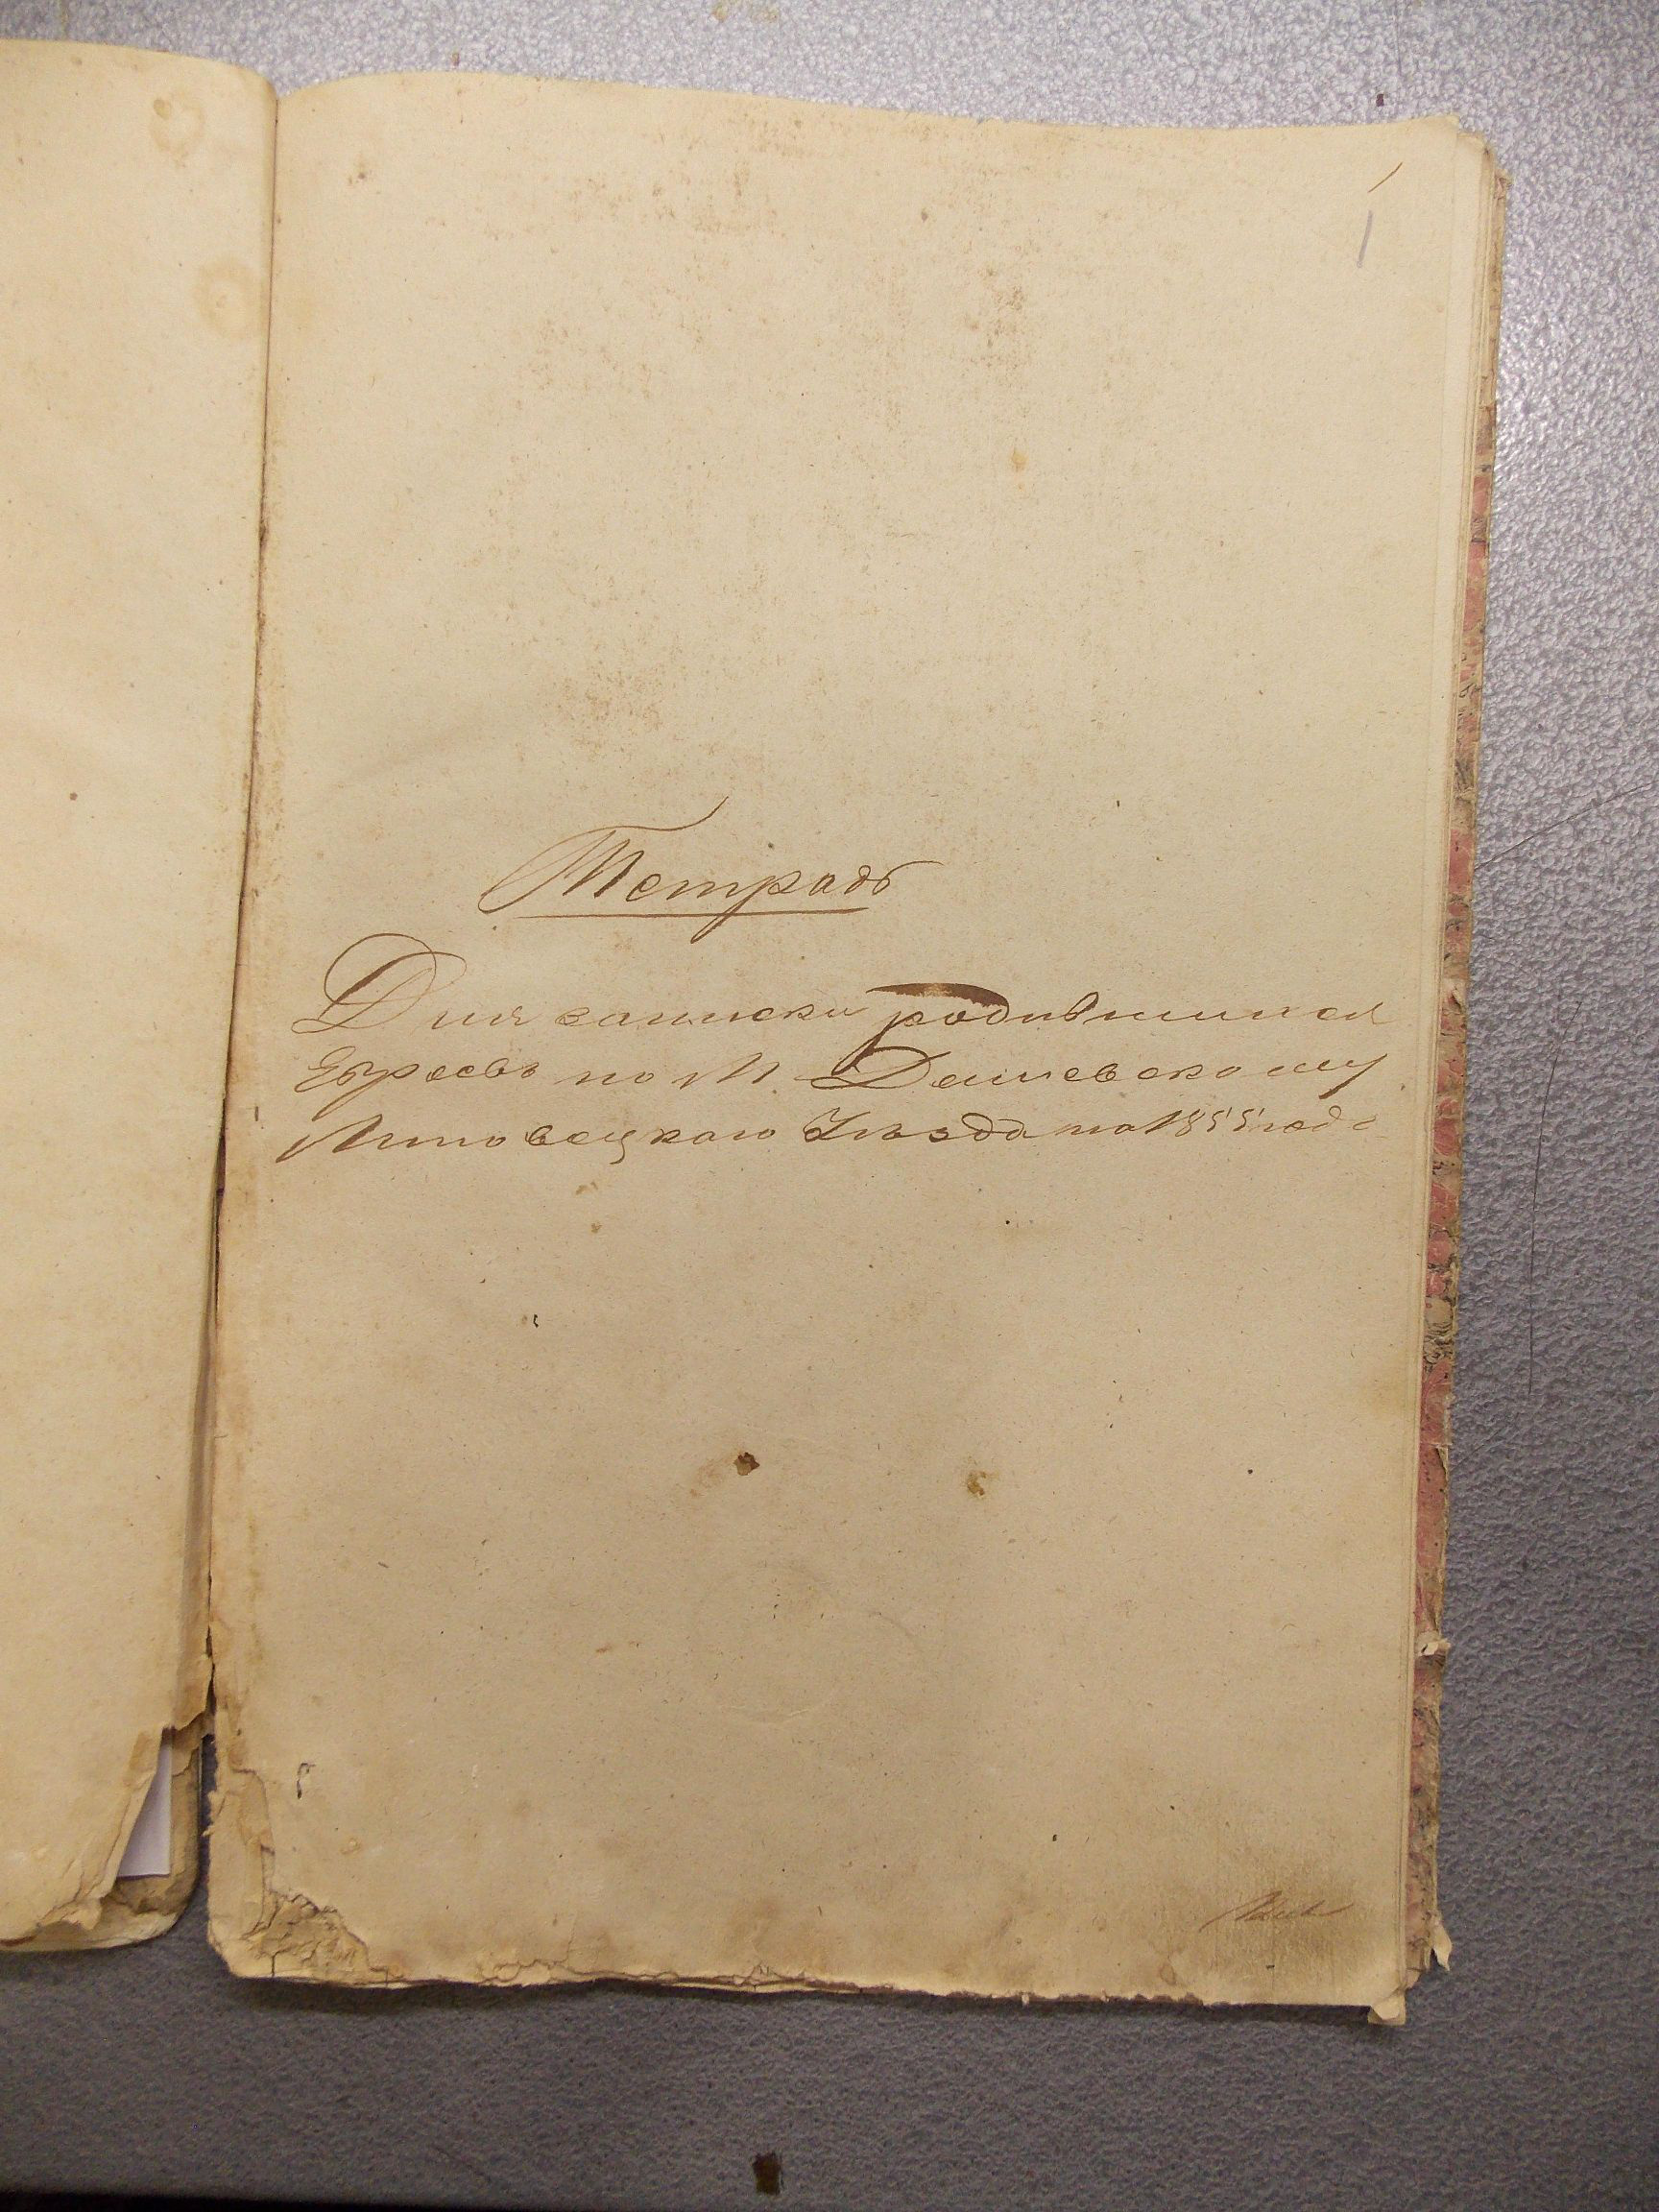 1
Тетрадь
Для записки родившихся
Евреевъ по М. Дашевскому
Липовецкаго Уѣзда на 1855 годъ